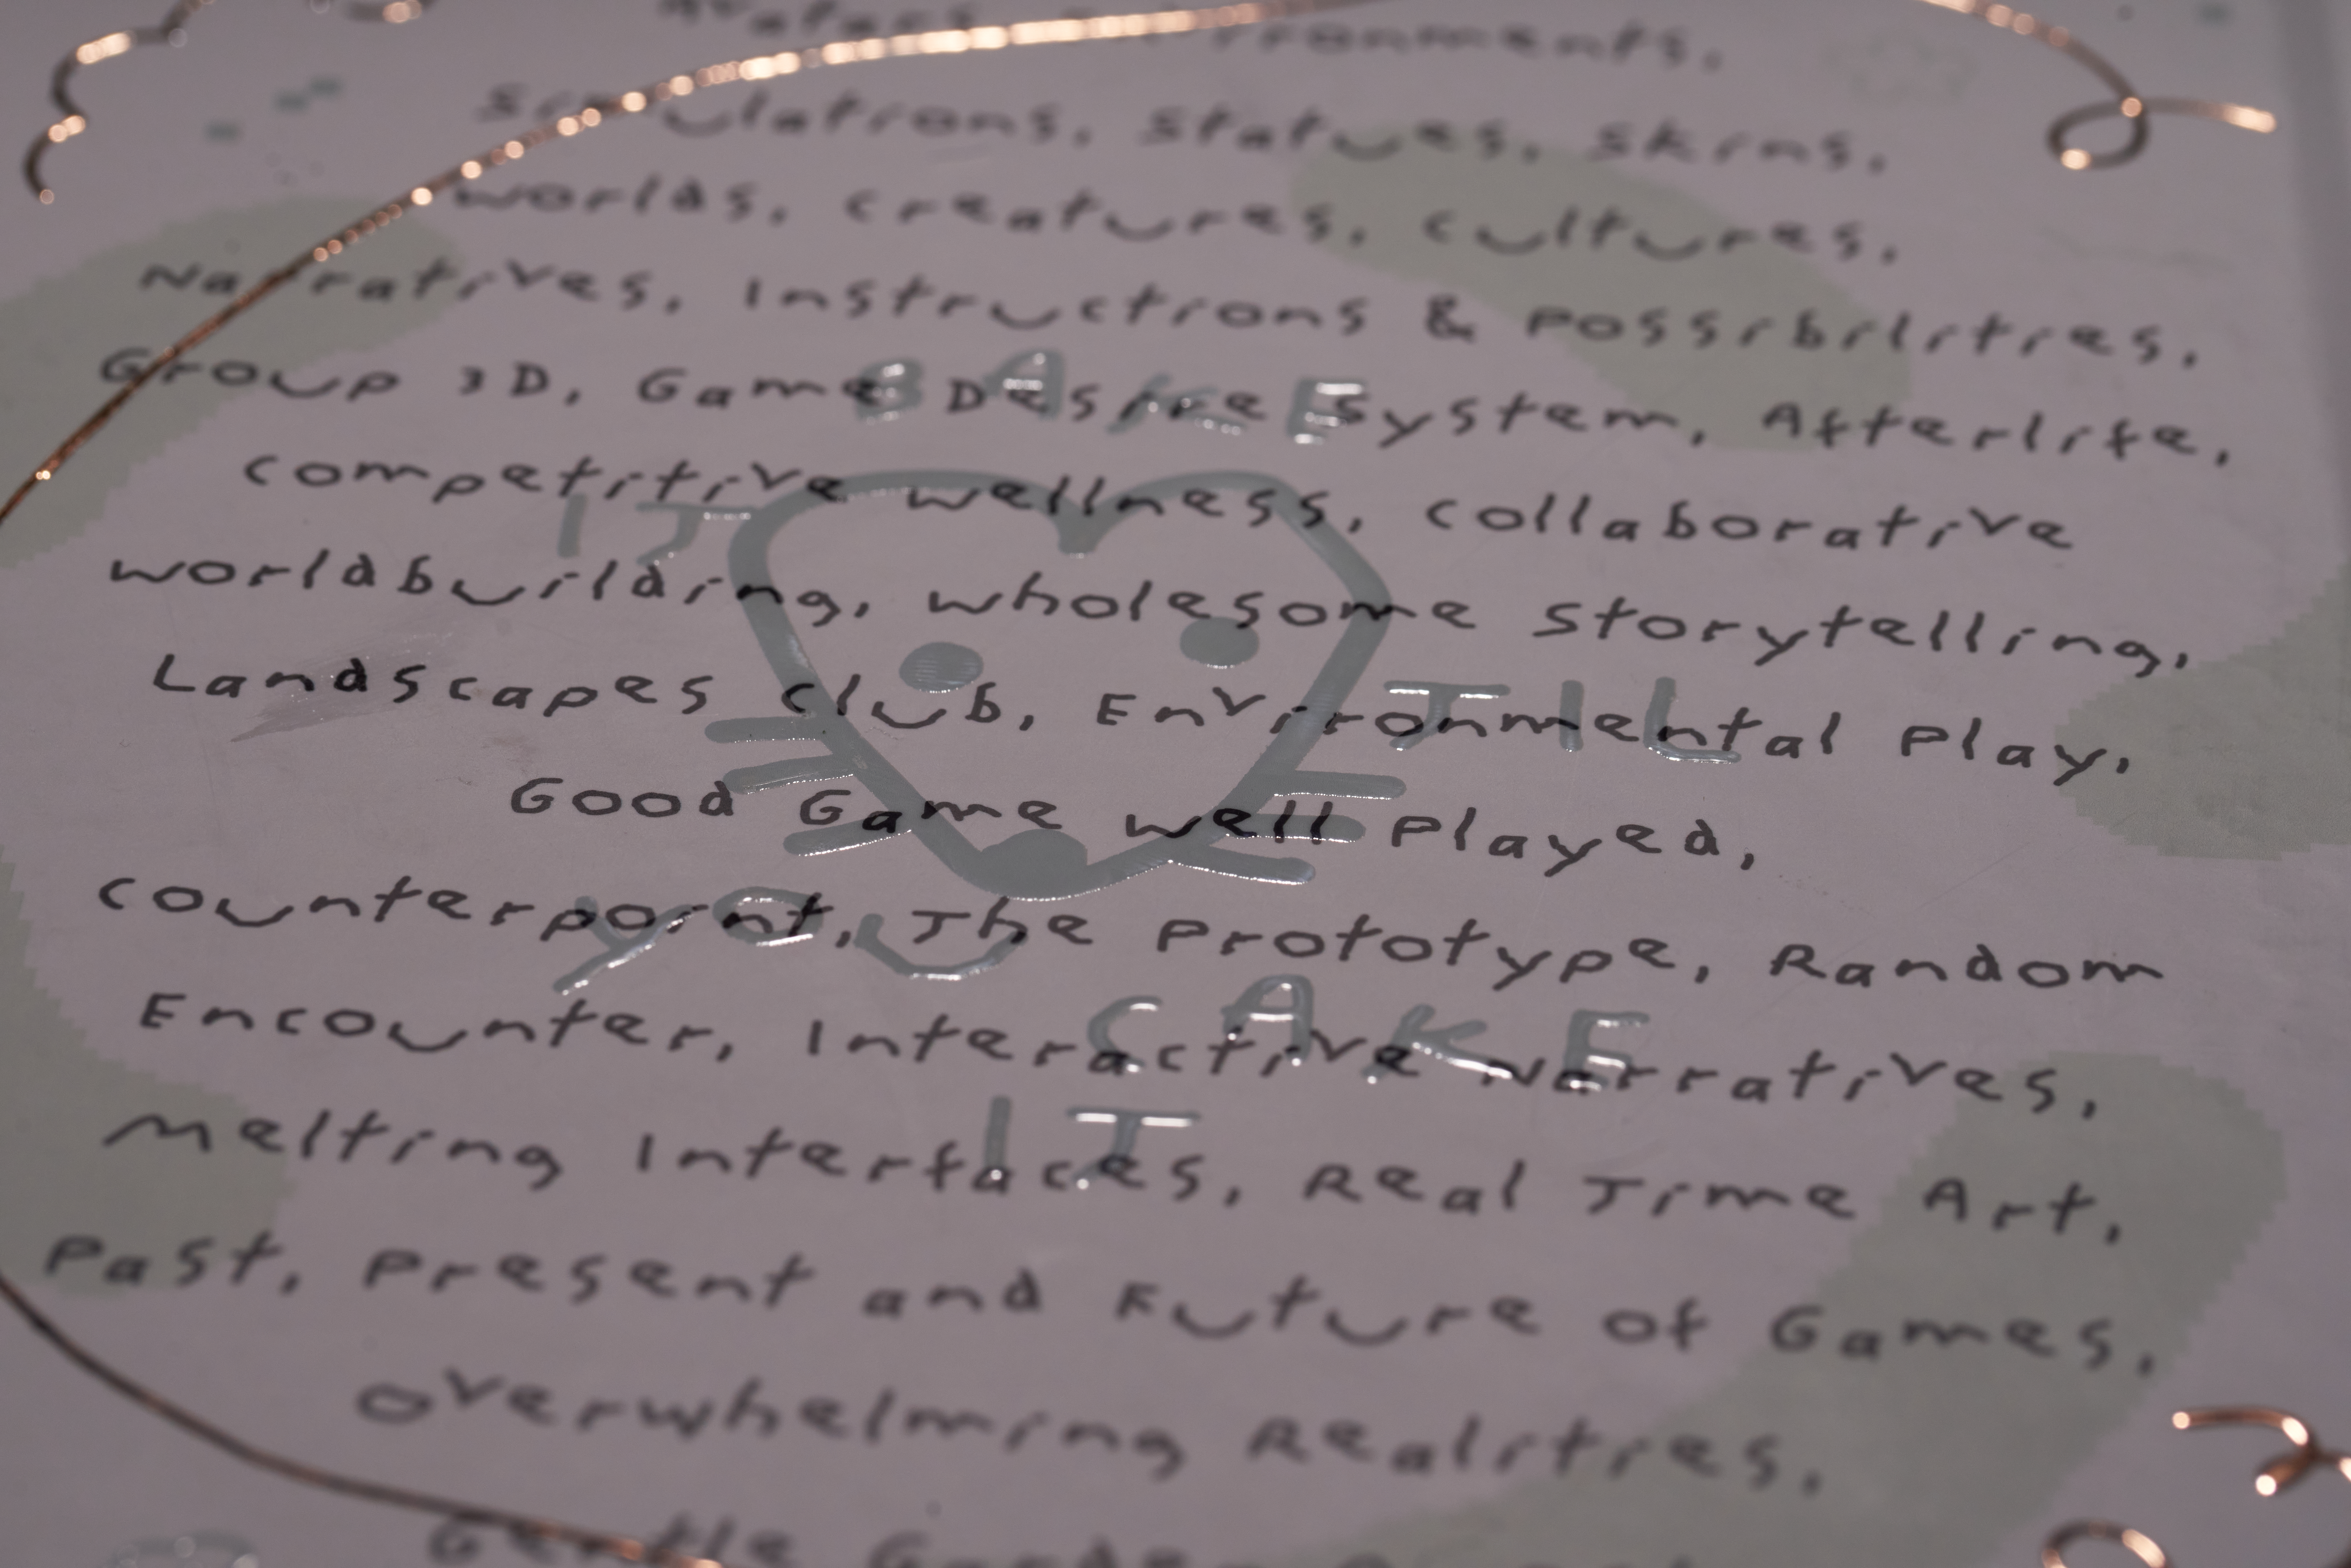 Avatars, Environments,
Simulations, Statues, Skins,
Worlds, Creatures, Cultures,
Narratives, Instructions & Possibilities,
Group 3D, Game Desire System, Afterlife,
Competitive Wellness, Collaborative
Worldbuilding, Wholesome Storytelling,
Landscapes Club, Environmental Play,
Good Game Well Played,
Counterpoint, The Prototype, Random
Encounter, Interactive Narratives,
Melting Interfaces, Real Time Art,
Past, Present and Future of Games,
Overwhelming Realities,
Gentle Garden
BAKE
IT
TIL
YOU
CAKE
IT